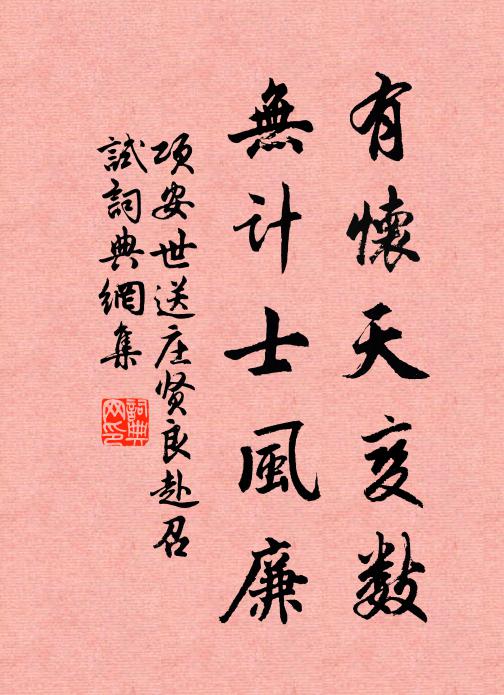 有懷天变数
無计士風廉
项安世送庄贤良赴召
試詞典網集
詞典网印